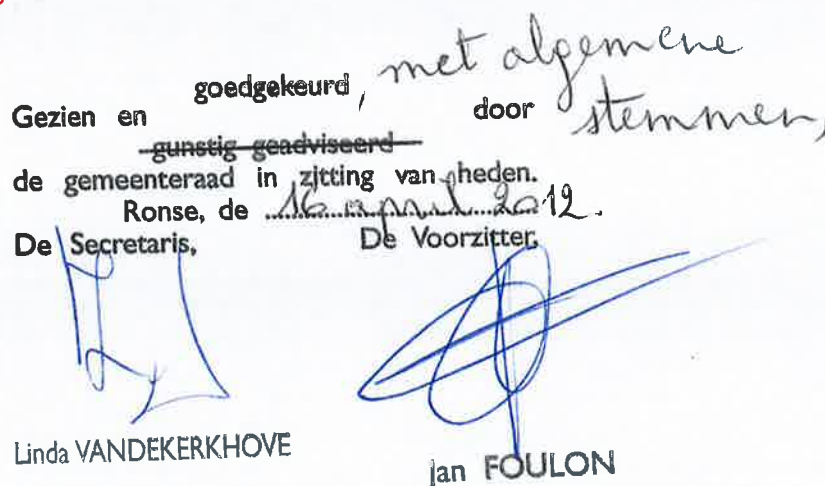 goedgekeurd, met algemene
Gezien en door stemmen,
gunstig geadviseerd
de gemeenteraad in zitting van heden.
Ronse, de 16 april 2012.
De Secretaris, De Voorzitter,
Linda VANDEKERKHOVE
Jan FOULON